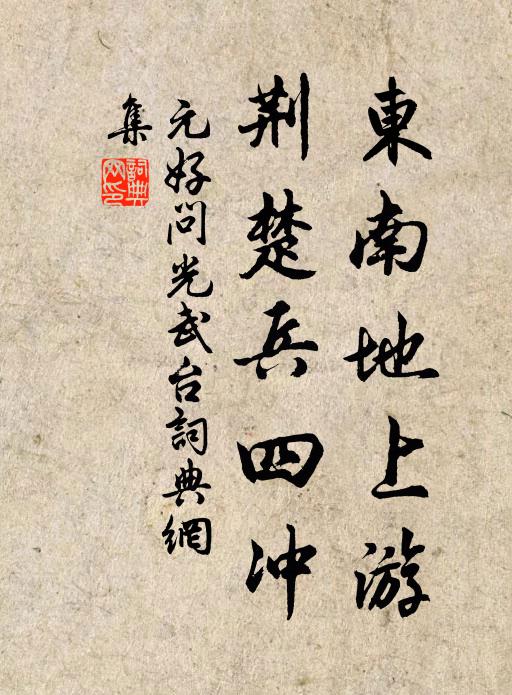 東南地上游
荆楚兵四冲
元好问光武台詞典網
集
詞典
网印